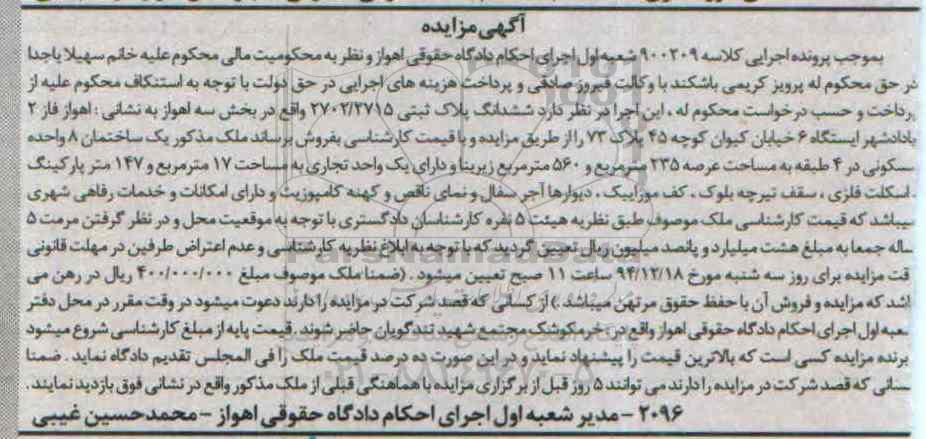 آگهی مزایده
بموجب پرونده اجرایی کلاسه ۹۰۰۲۰۹ شعبه اول اجرای احکام دادگاه حقوقی اهواز و نظر به محکومیت مالی محکوم علیه خانم سهیلا پاجدا
در حق محکوم له پرویز کریمی باشکند با وکالت فیروز صادقی و پرداخت هزینه های اجرایی در حق دولت با توجه به استنکاف محکوم علیه از
پرداخت و حسب درخواست محکوم له ، این اجرا در نظر دارد ششدانگ پلاک ثبتی ۲۷۰۲/۳۷۱۵ واقع در بخش سه اهواز به نشانی : اهواز فاز ۲
پادادشهر ایستگاه ۶ خیابان کیوان کوچه ۴۵ پلاک ۷۳ را از طریق مزایده و با قیمت کارشناسی بفروش برساند ملک مذکور یک ساختمان ۸ واحده
مسکونی در ۴ طبقه به مساحت عرصه ۲۳۵ مترمربع و ۵۶۰ مترمربع زیربنا و دارای یک واحد تجاری به مساحت ۱۷ مترمربع و ۱۴۷ متر پارکینگ
، اسکلت فلزی ، سقف تیرچه بلوک ، کف موزاییک ، دیوارها آجر سفال و نمای ناقص و کهنه کامپوزیت و دارای امکانات و خدمات رفاهی شهری
میباشد که قیمت کارشناسی ملک موصوف طبق نظریه هیئت ۵ نفره کارشناسان دادگستری با توجه به موقعیت محل و در نظر گرفتن مرمت ۵
ساله جمعا به مبلغ هشت میلیارد و پانصد میلیون ریال تعیین گردید که با توجه به ابلاغ نظریه کارشناسی و عدم اعتراض طرفین در مهلت قانونی
وقت مزایده برای روز سه شنبه مورخ ۹۴/۱۲/۱۸ ساعت ۱۱ صبح تعیین میشود . (ضمنا ملک موصوف مبلغ ۴۰۰/۰۰۰/۰۰۰ ریال در رهن می
باشد که مزایده و فروش آن با حفظ حقوق مرتهن میباشد .) از کسانی که قصد شرکت در مزایده را دارند دعوت میشود در وقت مقرر در محل دفتر
شعبه اول اجرای احکام دادگاه حقوقی اهواز واقع در خرمکوشک مجتمع شهید تندگویان حاضر شوند . قیمت پایه از مبلغ کارشناسی شروع میشود
برنده مزایده کسی است که بالاترین قیمت را پیشنهاد نماید و در این صورت ده درصد قیمت ملک را فی المجلس تقدیم دادگاه نماید . ضمنا
کسانی که قصد شرکت در مزایده را دارند می توانند ۵ روز قبل از برگزاری مزایده با هماهنگی قبلی از ملک مذکور واقع در نشانی فوق بازدید نمایند .
۲۰۹۶ - مدیر شعبه اول اجرای احکام دادگاه حقوقی اهواز - محمدحسین غیبی